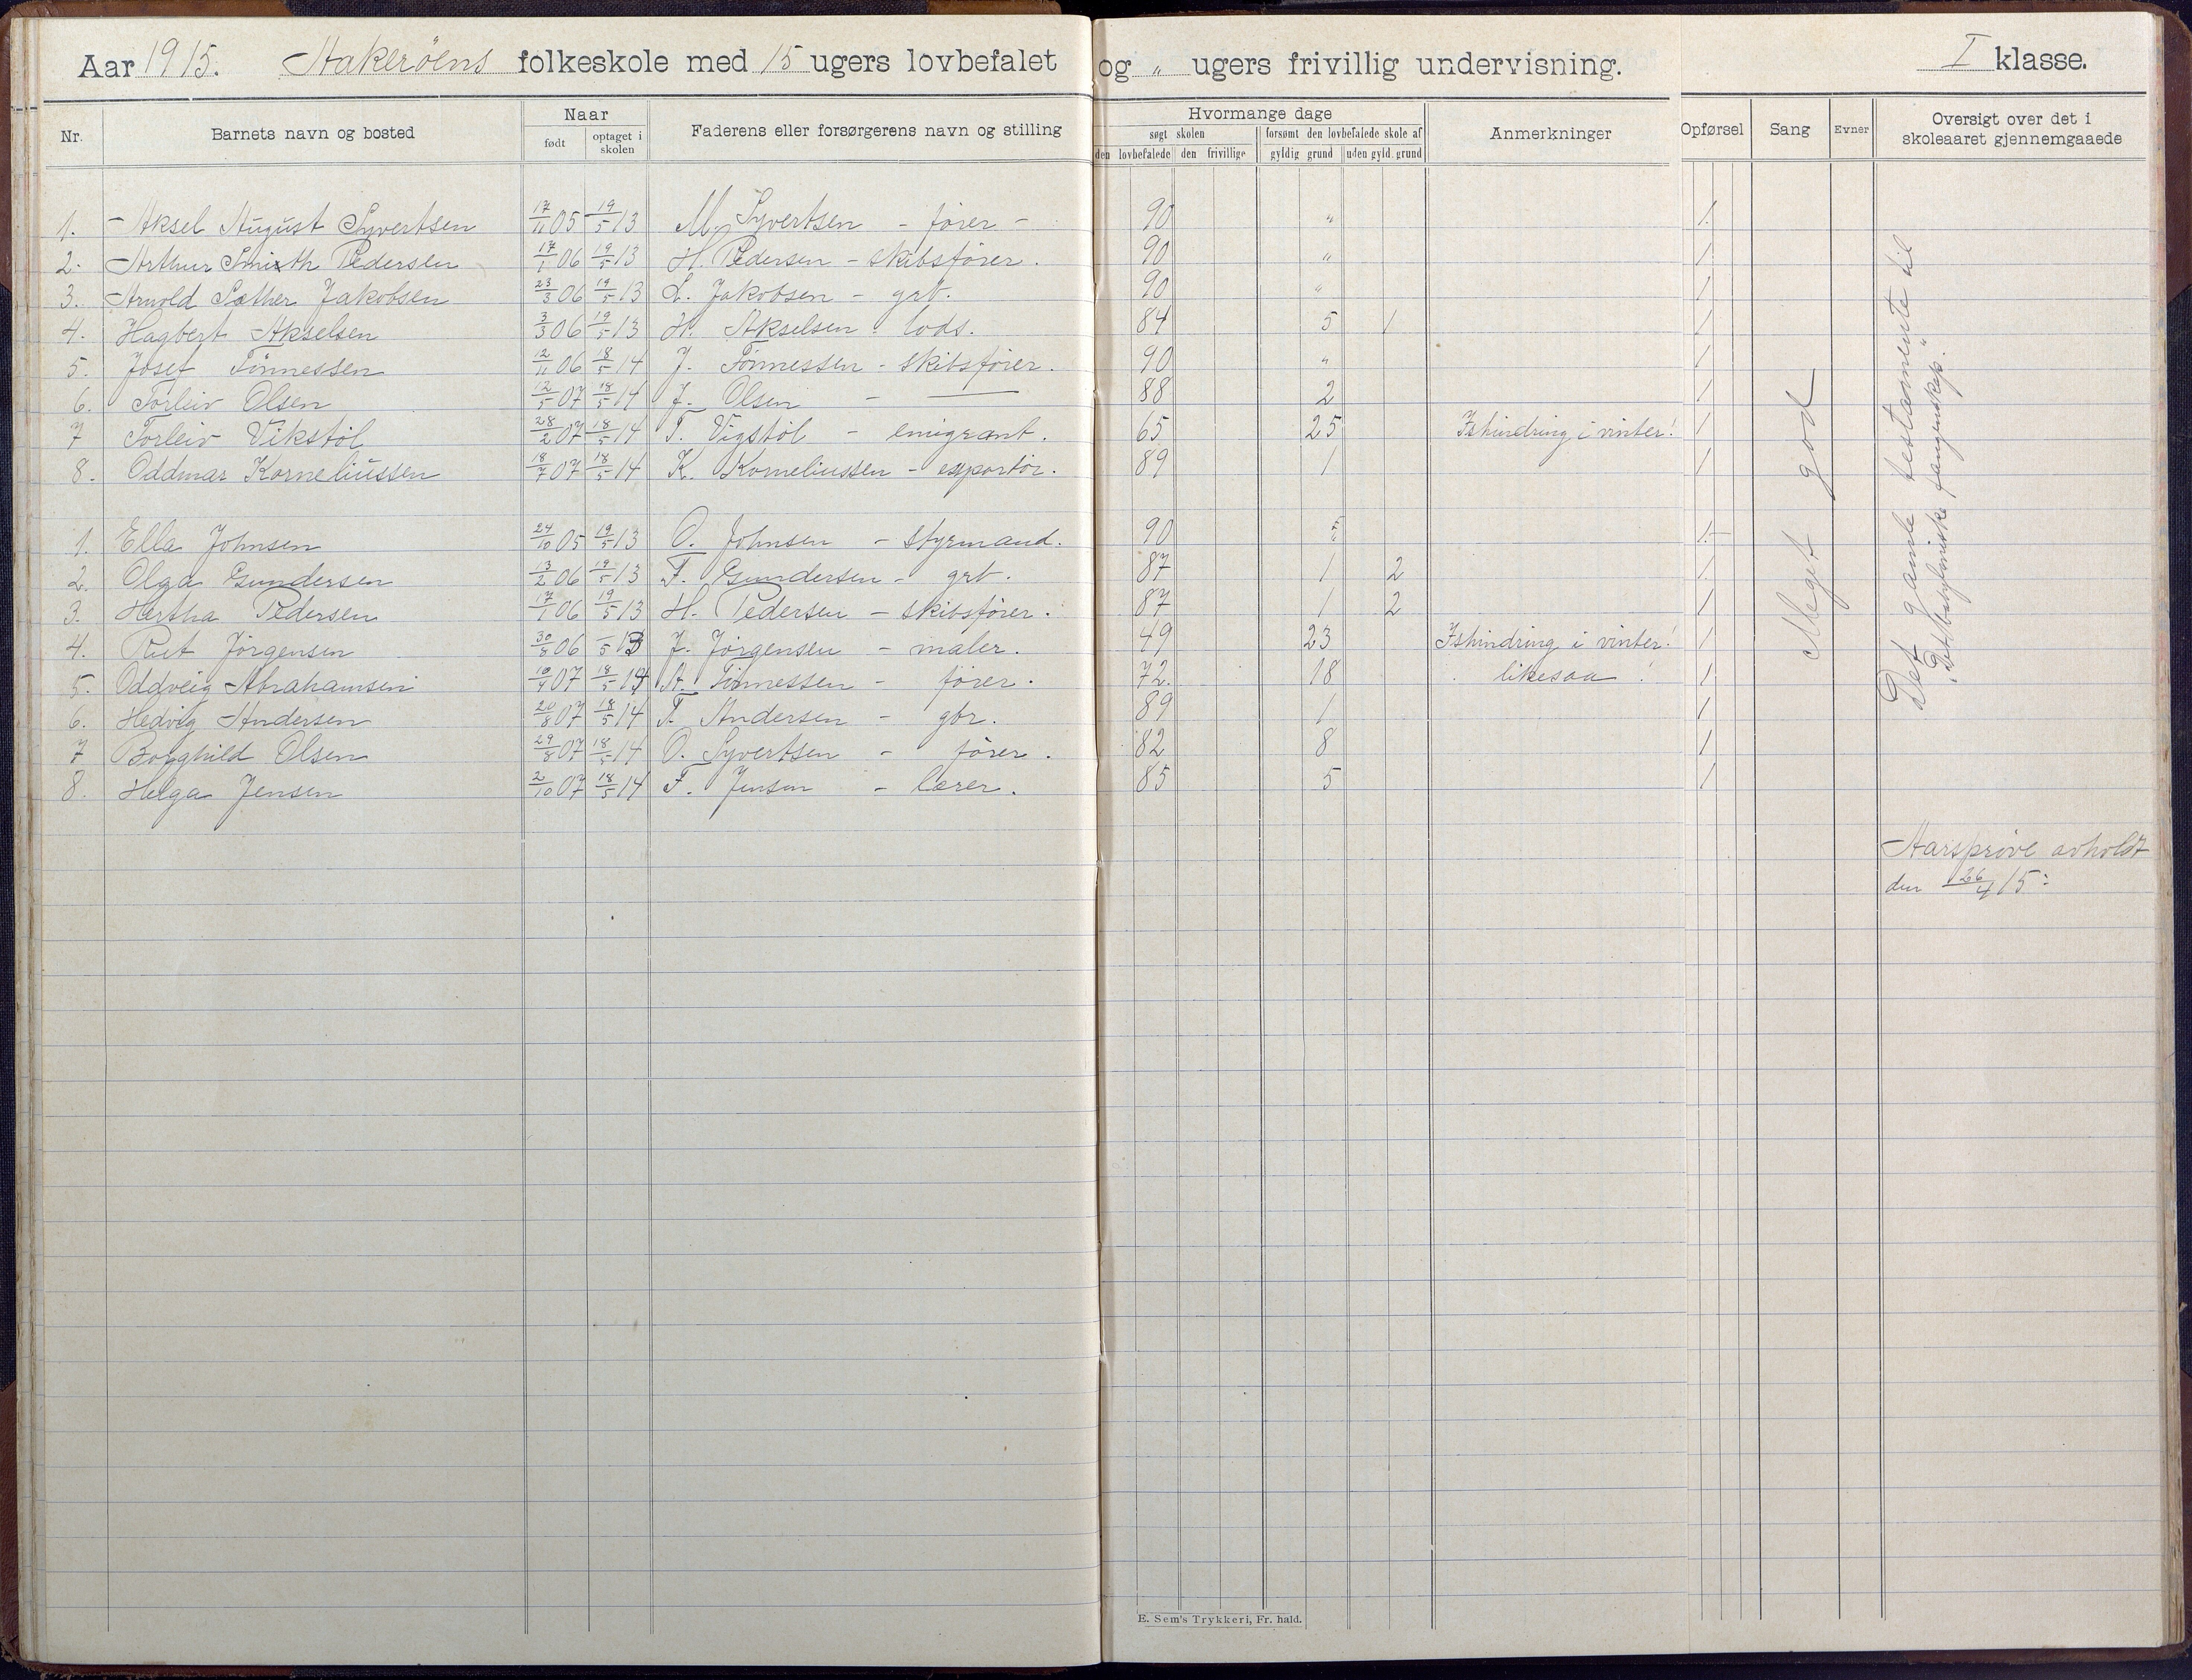 Aar 1915. Hakeröens folkeskole med 15 ugers lovbefalet og " ugers frivillig undervisning. I klasse.
Nr. Barnets navn og bosted Naar født optaget i skolen Faderens eller forsørgerens navn og stilling Hvormange dage søgt skolen den lovbefalede den frivillige forsømt den lovbefalede skole af gyldig grund uden gyld. grund Anmerkninger Opførsel Sang Evner Oversigt over det i skoleaaret gjennemgaaede
1. Aksel August Syvertsen 17/11 05 19/5 13 M. Syvertsen - fører - 90 " 1.
2. Arthur Smith Pedersen 17/1 06 19/5 13 H. Pedersen - skibsfører. 90 " 1
3. Arnold Sæther Jakobsen 23/3 06 19/5 13 L. Jakobsen - grb. 90 " 1
4. Hagbert Akselsen 3/3 06 19/5 13 H. Akselsen - lods. 84 5 1 1
5. Josef Tönnessen 12/11 06 18/5 14 J. Tönnessen - skibsfører. 90 " 1
6. Torleiv Olsen 12/5 07 18/5 14 J. Olsen - — 88 2 1
7 Torleiv Vikstöl 28/2 07 18/5 14 T. Vigstöl - emigrant. 65 25 Ishindring i vinter! 1
8. Oddmar Korneliussen 18/7 07 18/5 14 K. Korneliussen - exportör. 89 1 1
1. Ella Johnsen 24/10 05 19/5 13 O. Johnsen - styrmand. 90 " 1.
2. Olga Gundersen 13/2 06 19/5 13 F. Gundersen - grb. 87 1 2 1
3. Hertha Pedersen 17/1 06 19/5 13 H. Pedersen - skibsfører. 87 1 2 1
4. Rut Jörgensen 30/8 06 -/5 13 J. Jörgensen - maler. 49 23 Ishindring i vinter! 1
5. Oddveig Abrahamsen 10/4 07 18/5 14 A. Tönnessen - fører. 72. 18 likesaa ! 1
6. Hedvig Andersen 20/8 07 18/5 14 T. Andersen - gbr. 89 1 1
7 Borghild Olsen 29/8 07 18/5 14 O. Syvertsen - fører. 82 8 1
8. Helga Jensen 2/10 07 18/5 14 F. Jensen - lærer. 85 5 1
Meget god
Det gamle testamente til
"Det babyloniske fangenskap."
Aarsprøve avholdt
den 26/4 15:
E. Sem's Trykkeri, Fr. hald.